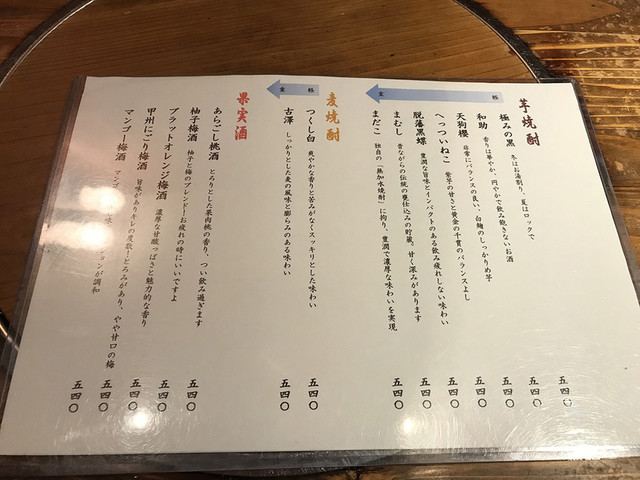 芋焼酎
軽
重
極みの黒 冬はお湯割り、夏はロックで 五四〇
和助 香りは華やか、円やかで飲み飽きないお酒 五四〇
天狗櫻 非常にバランスの良い、白麹のしっかりめ芋 五四〇
へっついねこ 紫芋の甘さと黄金の千貫のバランスよし 五四〇
脱藩黒螺 豊潤な旨味とインパクトのある飲み疲れしない味わい 五四〇
まむし 昔ながらの伝統の甕仕込みの貯蔵、甘く深みがあります 五四〇
まだこ 独自の「熱加水焼酎」に拘り、豊潤で濃厚な味わいを実現 五四〇
麦焼酎
軽
重
つくし白 爽やかな香りと苦みがなくスッキリとした味わい 五四〇
古澤 しっかりとした麦の風味と膨らみのある味わい 五四〇
果実酒
あらごし桃酒 とろりとした果肉桃の香り、つい飲み過ぎます 五四〇
柚子梅酒 柚子と梅のブレンド！お疲れの時にいいですよ 五四〇
ブラットオレンジ梅酒 濃厚な甘酸っぱさと魅力的な香り 五四〇
甲州にごり梅酒 旨味がありキレの度数！とろみがあり、やや甘口の梅 五四〇
マンゴー梅酒 マンゴ ションが調和 五四〇